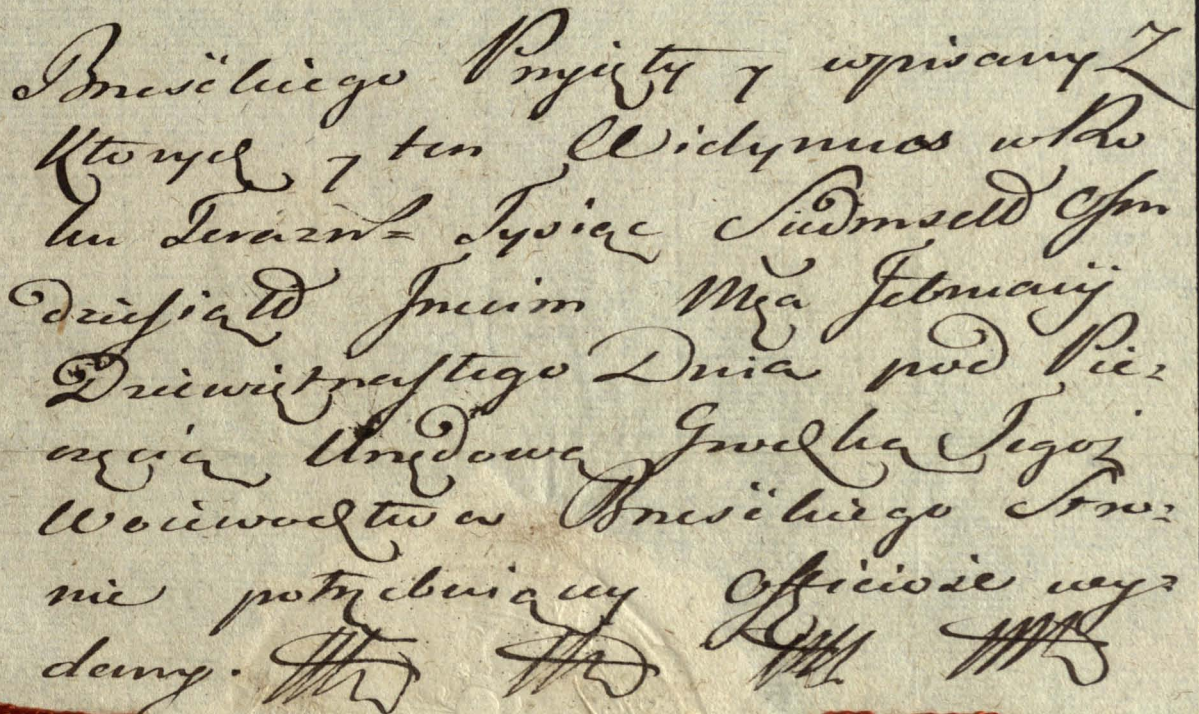 Brzeskiego Przyięty y wpisany Z
Ktorych y ten Widymus w Ro
ku Teraznl= Tysiąc Siedmsetd Osm
dziesiątd Trzecim Mca Februarij
Dziewiętnastego Dnia pod Pie=
częcią Urzędową Grodzką Tegoż
Woiewodztwa Brzeskiego Stro=
nie potrzebuiącey Officiose wy=
dany.